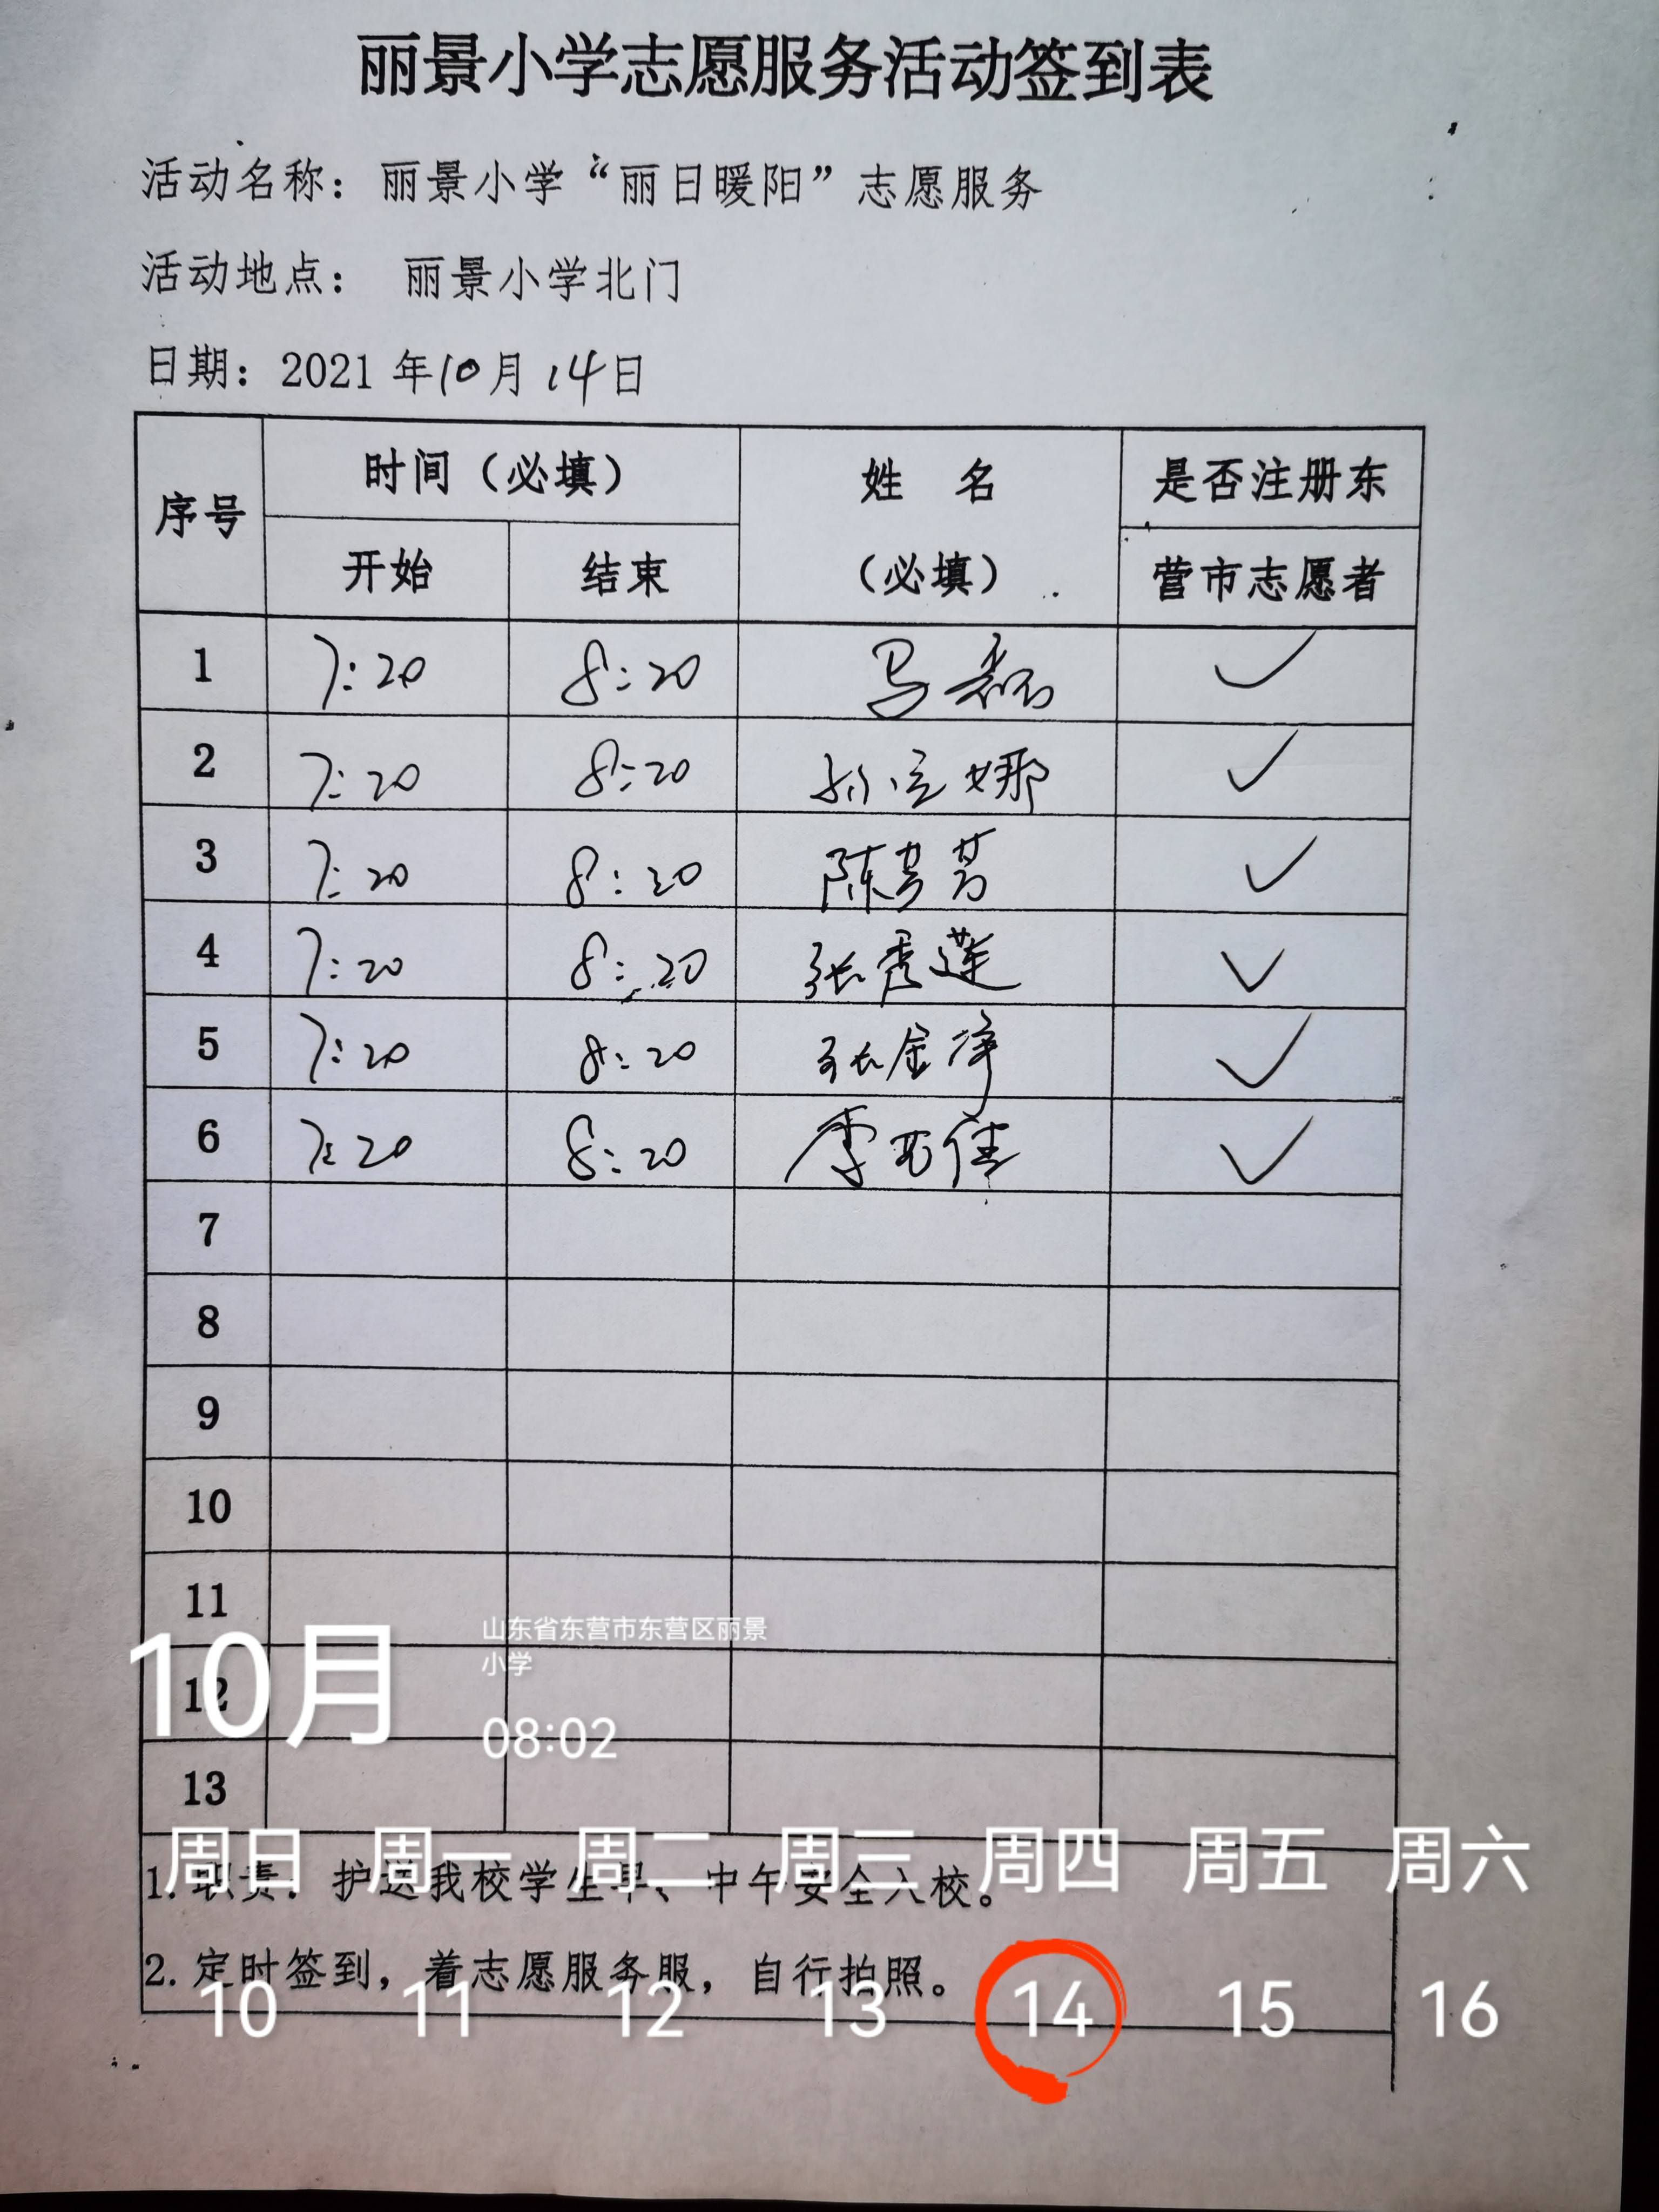 丽景小学志愿服务活动签到表
活动名称：丽景小学“丽日暖阳”志愿服务
活动地点： 丽景小学北门
日期：2021年10月14日
序号 时间（必填） 姓 名 是否注册东
开始 结束 （必填） 营市志愿者
1 7:20 8:20 马 ✓
2 7:20 8:20 孙 娜 ✓
3 7:20 8:20 陈 芳 ✓
4 7:20 8:20 张秀莲 ✓
5 7:20 8:20 张金 ✓
6 7:20 8:20 李亚佳 ✓
7
8
9
10
11
12
13
1.职责：护送我校学生早、中午安全入校。
2.定时签到，着志愿服务服，自行拍照。
10月
山东省东营市东营区丽景
小学
08:02
周日 周一 周二 周三 周四 周五 周六
10 11 12 13 14 15 16